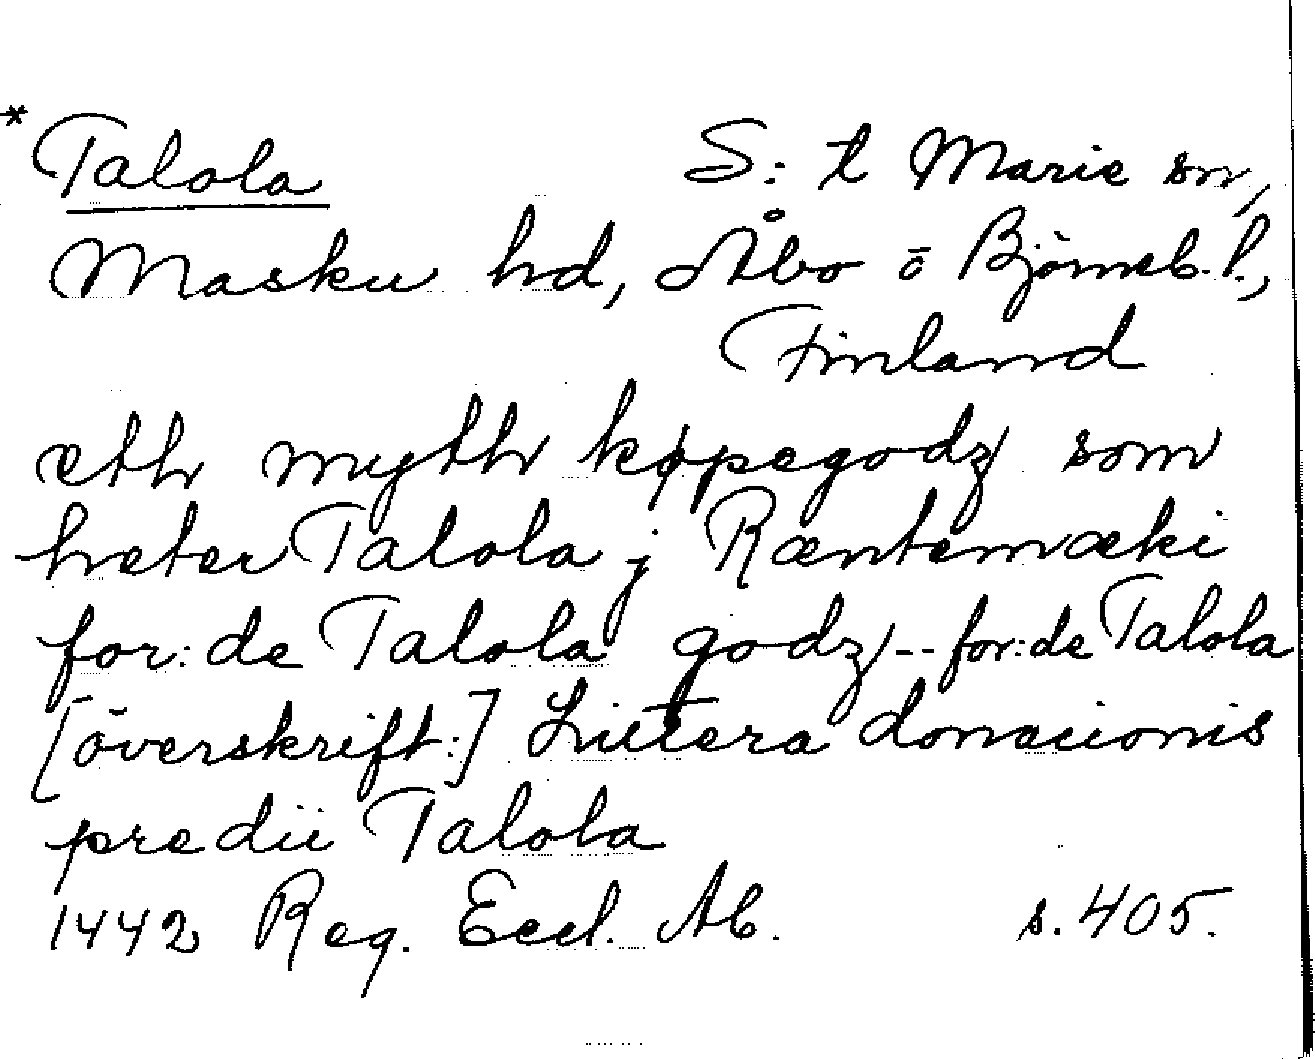 * Talola S:t Marie sn,
Masku hd, Åbo ō Björneb. l.,
Finland
eth myth køpegodz som
heter Talola j Ræntemæki
for:de Talola godz -- for:de Talola
[överskrift:] Littera donacionis
predii Talola
1442 Reg. Eccl. Ab. s. 405.